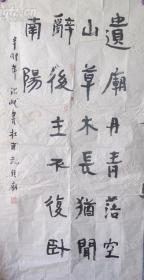 遺廟丹青落空
山草木長猶聞
辭後主不復臥
南陽